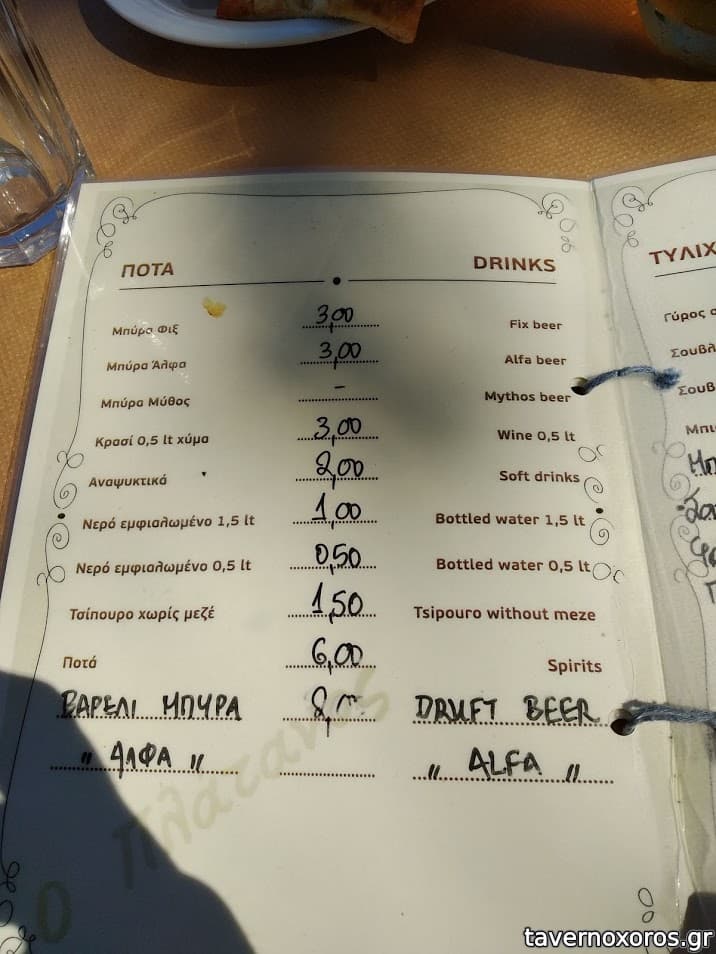 ΠΟΤΑ DRINKS
Μπύρα Φιξ 3,00 Fix beer
Μπύρα Άλφα 3,00 Alfa beer
Μπύρα Μύθος - Mythos beer
Κρασί 0,5 lt χύμα 3,00 Wine 0,5 lt
Αναψυκτικά 2,00 Soft drinks
Νερό εμφιαλωμένο 1,5 lt 1,00 Bottled water 1,5 lt
Νερό εμφιαλωμένο 0,5 lt 0,50 Bottled water 0,5 lt
Τσίπουρο χωρίς μεζέ 1,50 Tsipouro without meze
Ποτά 6,00 Spirits
ΒΑΡΕΛΙ ΜΠΥΡΑ DRUFT BEER
" ΑΛΦΑ " " ALFA "
Ο Πλατανος
ΤΥΛΙΧ
Γύρος
Σουβλ
Σουβ
tavernoxoros.gr